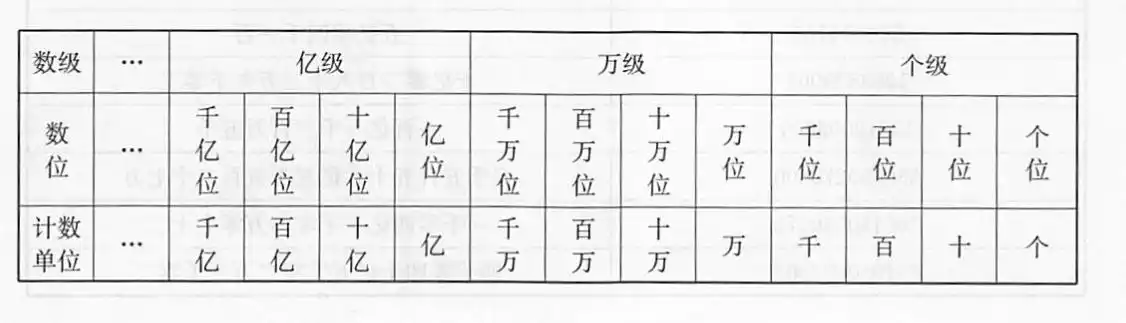 数级 … 亿级 万级 个级
数位 … 千亿位 百亿位 十亿位 亿位 千万位 百万位 十万位 万位 千位 百位 十位 个位
计数单位 … 千亿 百亿 十亿 亿 千万 百万 十万 万 千 百 十 个